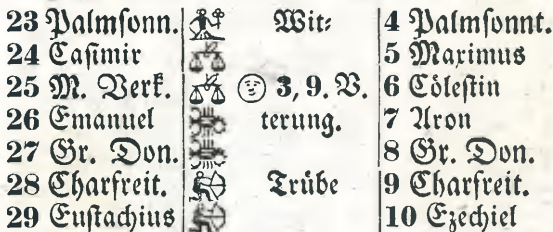 23 Palmſonn. Wit⸗ 4 Palmſonnt.
24 Caſimir 5 Maximus
25 M. Verk. 3, 9. V. 6 Cöleſtin
26 Emanuel terung. 7 Aron
27 Gr. Don. 8 Gr. Don.
28 Charfreit. Trübe 9 Charfreit.
29 Euſtachius 10 Ezechiel